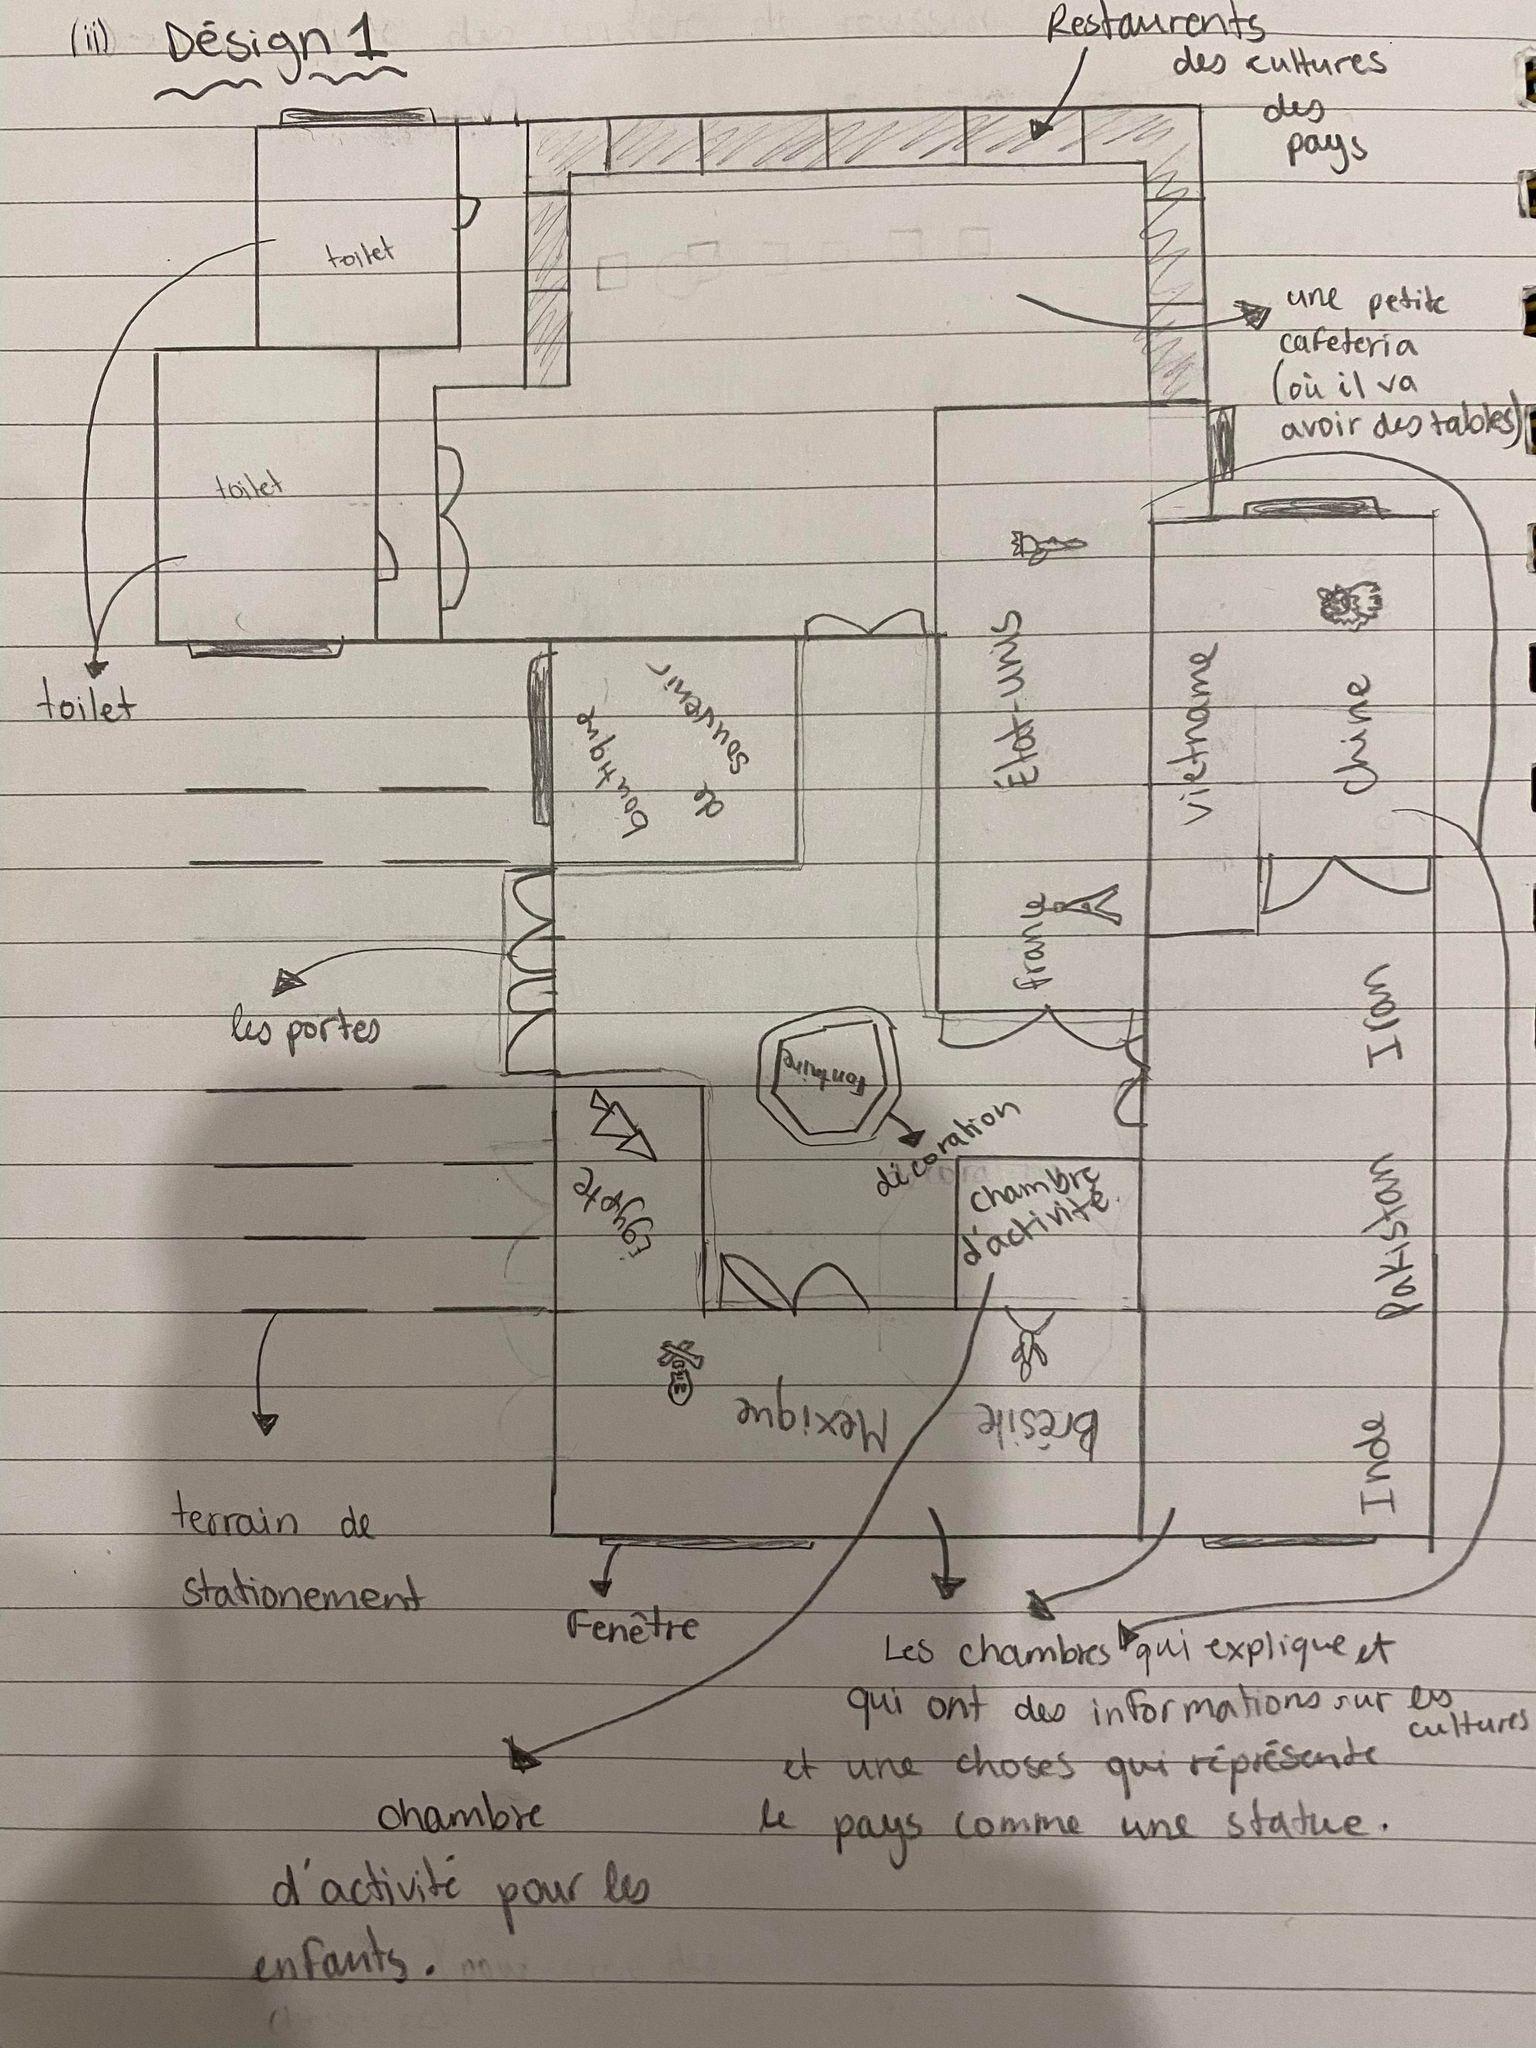 (ii) Désign 1
Restaurents
des cultures
des
pays
toilet
une petite
cafeteria
(où il va
avoir des tables)
toilet
toilet
boutique
de
souvenir
État-unis
vietname
chine
france
les portes
fontaine
décoration
Iran
Égypte
chambre
d'activité.
Pakistan
Mexique
Brésile
Inde
terrain de
stationement
Fenêtre
Les chambres qui explique et
qui ont des informations sur les
cultures
et une choses qui réprésente
le pays comme une statue.
chambre
d'activité pour les
enfants.